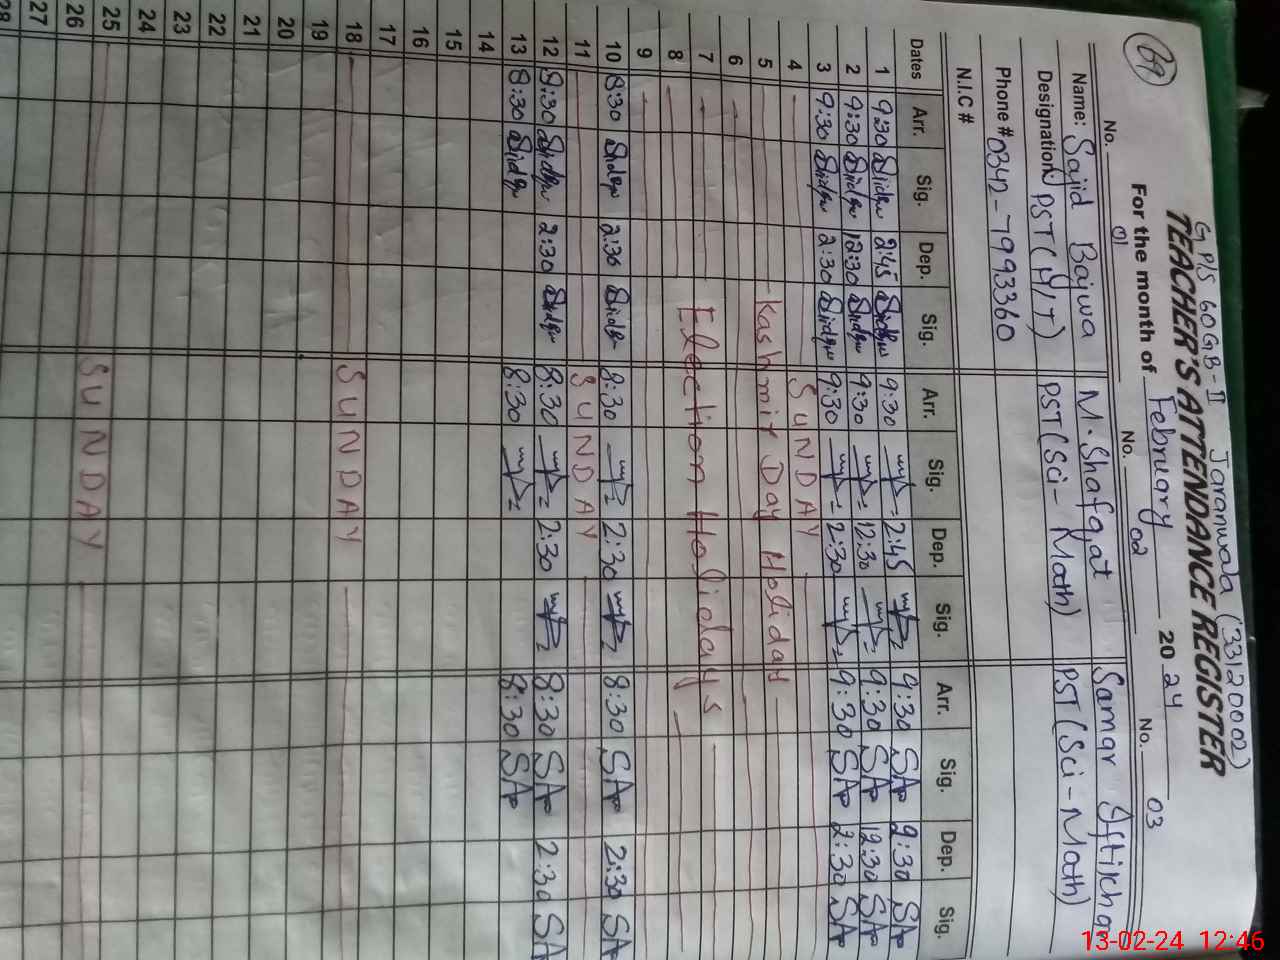 69
GP/S 60GB-II Jaranwala (33120002)
TEACHER'S ATTENDANCE REGISTER
For the month of February 2024
No. 01 No. 02 No. 03
Name: Sajid Bajwa M. Shafqat Samar Iftikhar
Designation PST(M/T) PST(Sci-Math) PST(Sci-Math)
Phone # 0342-7993360
N.I.C #
Dates Arr. Sig. Dep. Sig. Arr. Sig. Dep. Sig. Arr. Sig. Dep. Sig.
1 9:30 2:45 9:30 2:45 9:30 SAP 2:30 SAP
2 9:30 12:30 9:30 12:30 9:30 SAP 12:30 SAP
3 9:30 2:30 9:30 2:30 9:30 SAP 2:30 SAP
4 SUNDAY
5 Kashmir Day Holiday
6
7 Election Holidays
8
9
10 8:30 2:30 8:30 2:30 8:30 SAP 2:30 SA
11 SUNDAY
12 8:30 2:30 8:30 2:30 8:30 SAP 2:30 SA
13 8:30 8:30 8:30 SAP
14
15
16
17
18 SUNDAY
19
20
21
22
23
24
25 SUNDAY
26
27
28
13-02-24 12:46